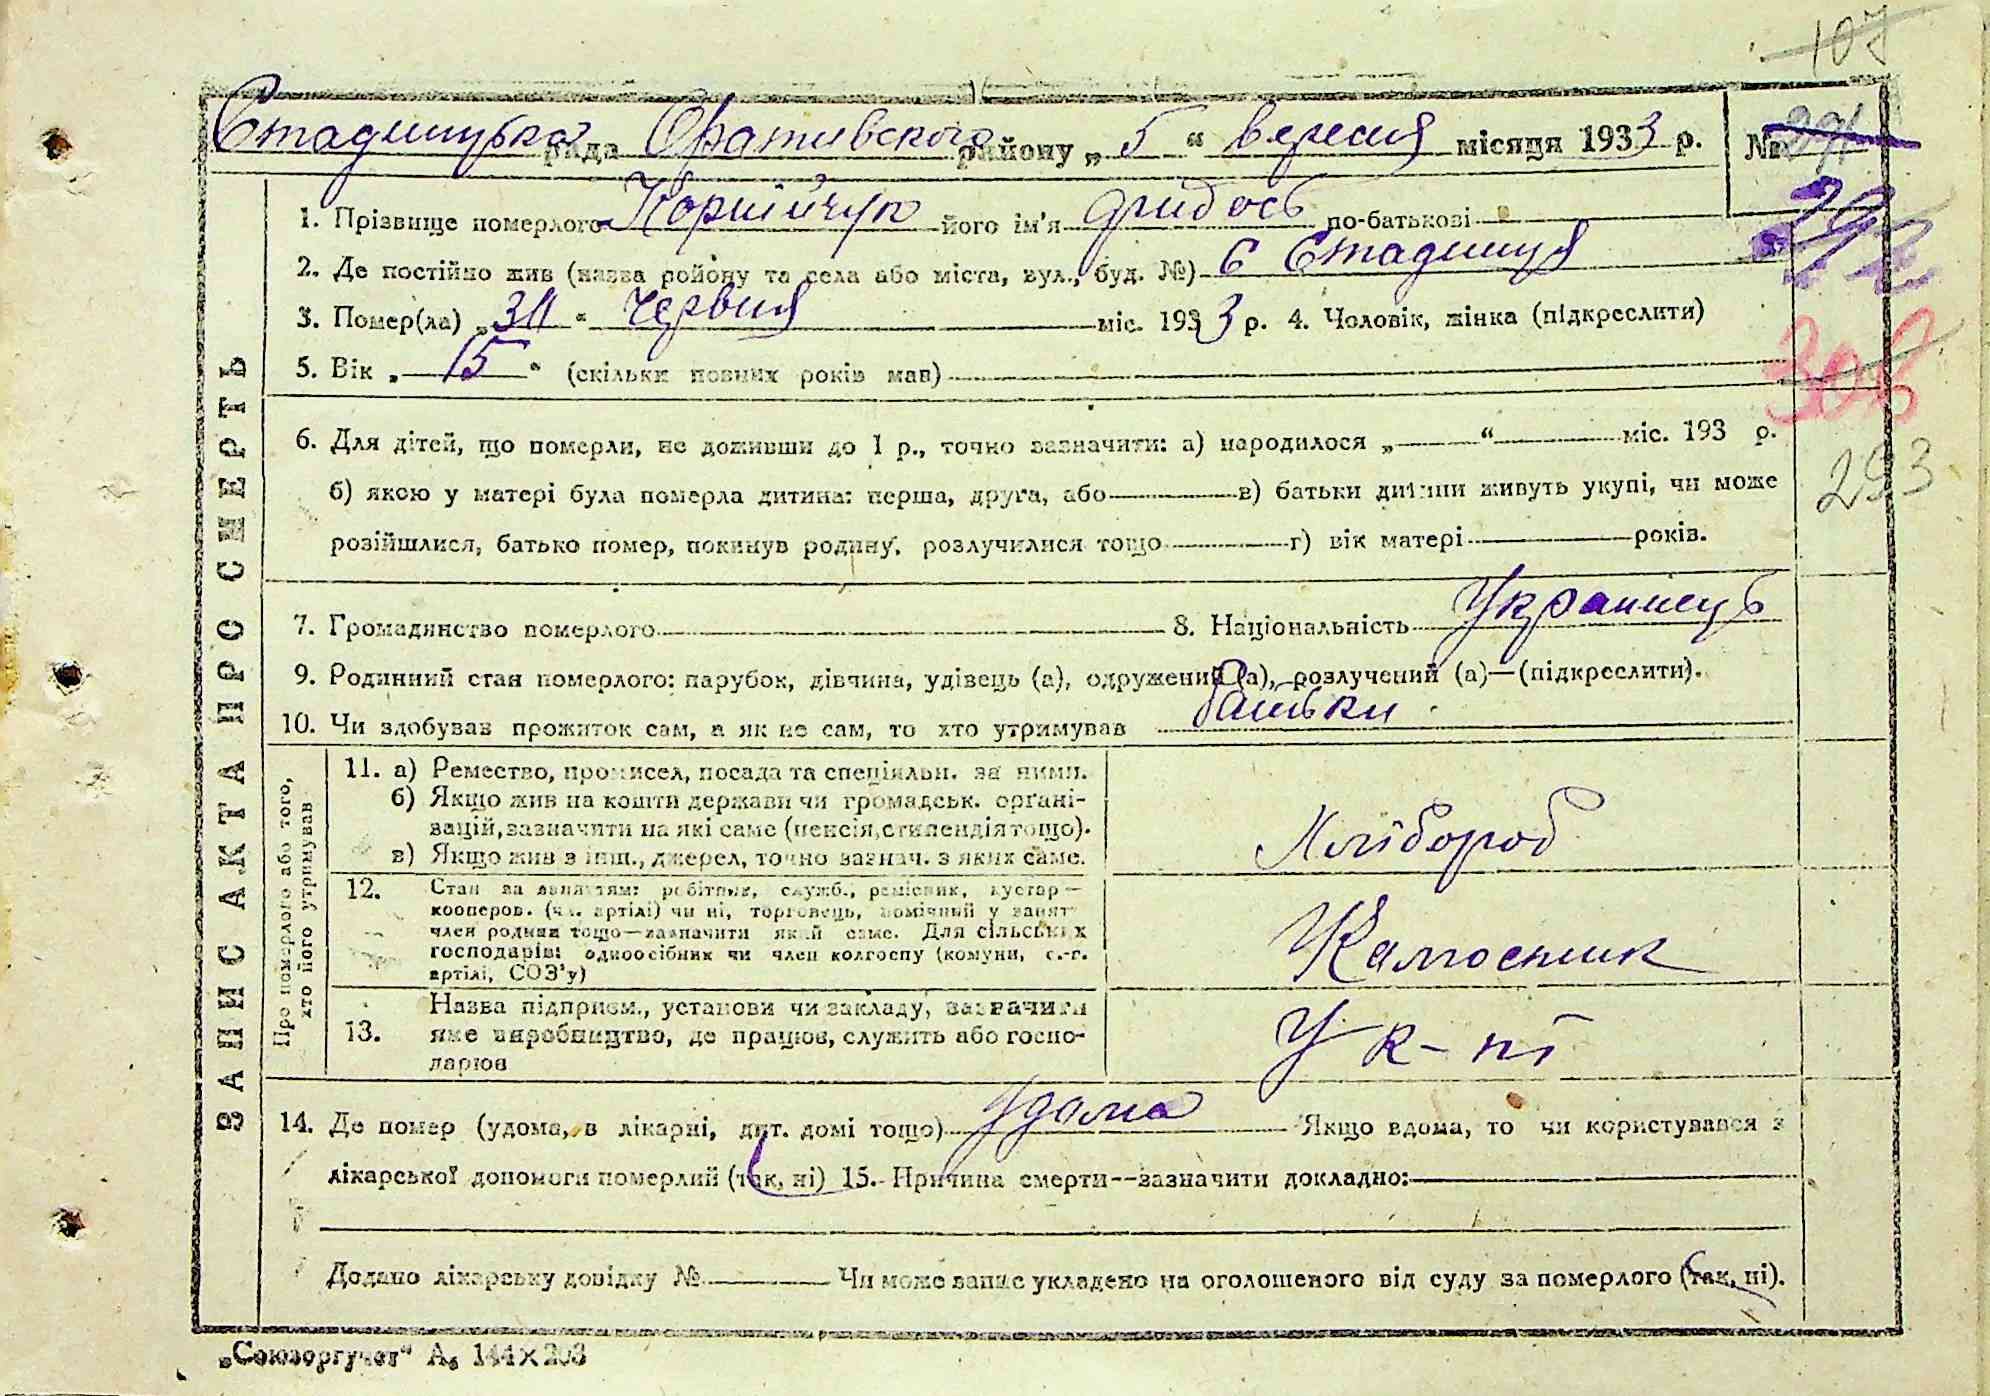 107
Стадницька рада Оратівского району „ 5 “ вересня місяця 1933 р. № 291
292
1. Прізвище померлого Корнійчук його ім'я Дмидось по-батькові
2. Де постійно жив (назва ройону та села або міста, вул., буд. №) с Стадниця
3. Помер(ла) „ 30 “ червня міс. 1933 р. 4. Чоловік, жінка (підкреслити)
5. Вік „ 15 “ (скільки повних років мав)
308
6. Для дітей, що померли, не доживши до 1 р., точно зазначити: а) народилося „ “ міс. 193 р.
293
б) якою у матері була померла дитина: перша, друга, або в) батьки дитини живуть укупі, чи може
розійшлися, батько помер, покинув родину, розлучилися тощо г) вік матері років.
7. Громадянство померлого 8. Національність Украинець
9. Родинний стан померлого: парубок, дівчина, удівець (а), одружений (а), розлучений (а)—(підкреслити).
10. Чи здобував прожиток сам, а як не сам, то хто утримував батьки
ЗАПИС АКТА ПРО СМЕРТЬ
Про померлого або того, хто його утримував
11. а) Ремество, промисел, посада та спеціяльн. за ними.
б) Якщо жив на кошти держави чи громадськ. орґані-
зацій, зазначити на які саме (пенсія, стипендія тощо).
в) Якщо жив з інш., джерел, точно зазнач. з яких саме.
Хлібороб
12. Стан за заняттям: робітник, служб., ремісник, кустар—
кооперов. (чл. артілі) чи ні, торговець, помічний у занят
член родини тощо—зазначити який саме. Для сільських
господарів: одноосібник чи член колгоспу (комуни, с.-г.
артілі, СОЗ'у)
Калгоспник
13. Назва підприєм., установи чи закладу, зазначити
яке виробництво, де працюв, служить або госпо-
дарюв
У к-пі
14. Де помер (удома, в лікарні, дит. домі тощо) удома Якщо вдома, то чи користувався з
лікарської допомоги померлий (так, ні) 15. Причина смерти—зазначити докладно:
Додано лікарську довідку № Чи може запис укладено на оголошеного від суду за померлого (так, ні).
„Союзоргучет“ А₆ 144×203